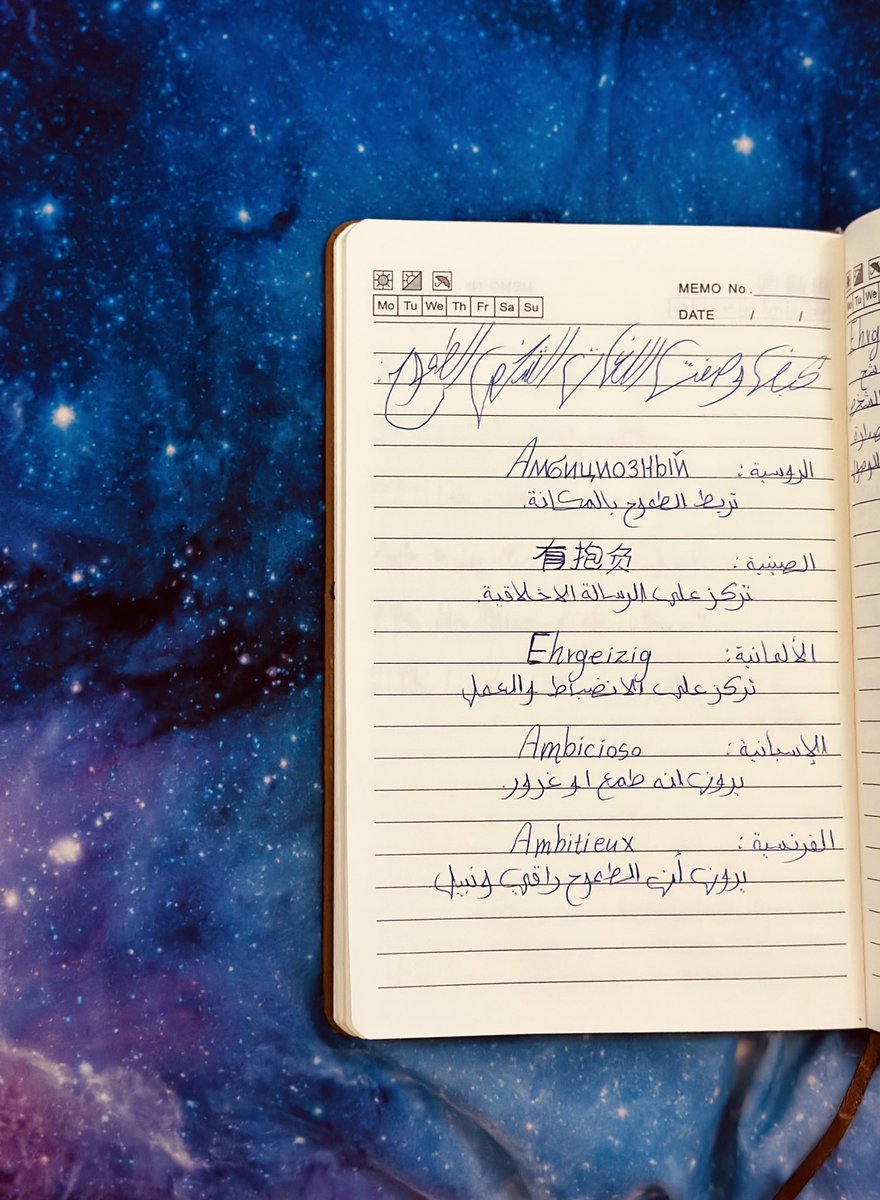 Mo Tu We Th Fr Sa Su
MEMO No.
DATE / /
كيف وصفت اللغات الشخص الطموح:
الروسية: Амбициозный
تربط الطموح بالمكانة.
الصينية: 有抱负
تركز على الرسالة الاخلاقية.
الألمانية: Ehrgeizig
تركز على الانضباط والعمل
الإسبانية: Ambicioso
يرون انه طمع او غرور.
الفرنسية: Ambitieux
يرون أن الطموح راقي ونبيل